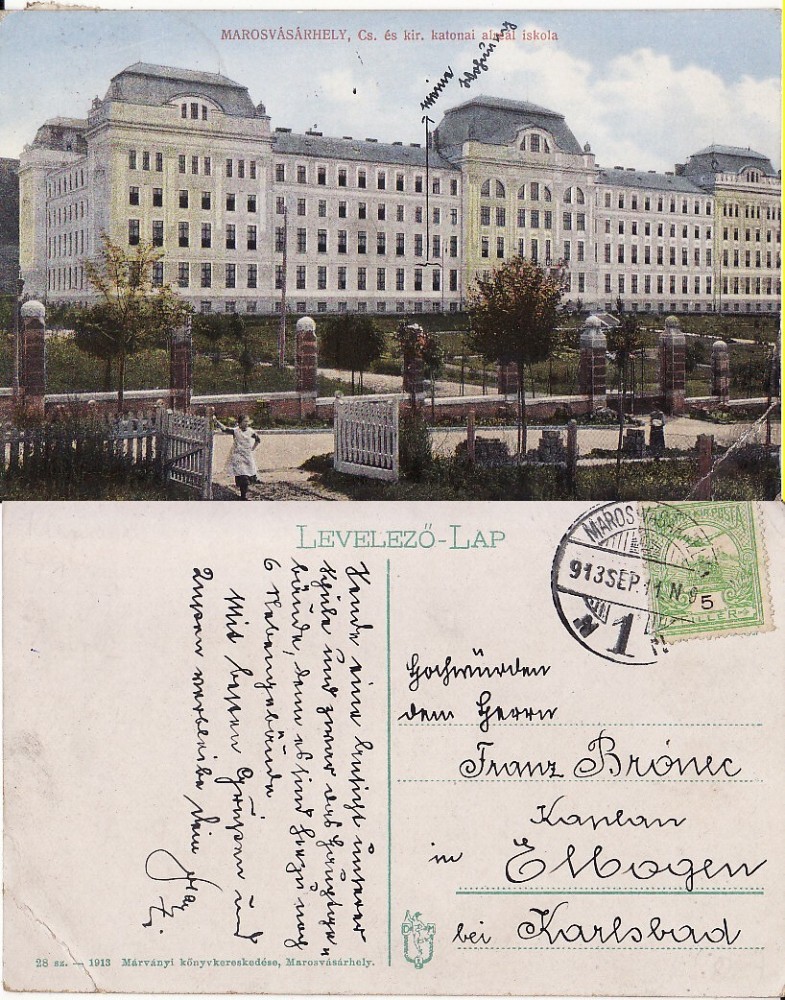 MAROSVÁSÁRHELY, Cs. és kir. katonai alreál iskola
meine
Wohnung
LEVELEZŐ-LAP
MAROSVÁSÁRHELY
913 SEP. 11. N. 9
N 1
MAGYAR KIR. POSTA
5
FILLÉR
Sende eine Ansicht unserer
Schule und zwar das Hauptge-
bäude, denn es sind hiezu noch
6 Nebengebäude
Mit besten Grüßen und
Küssen verbleibe Dein
Hochwürden
dem Herrn
Franz Brónec
Kaplan
in Elbogen
bei Karlsbad
D M
28 sz. — 1913 Márványi könyvkereskedése, Marosvásárhely.